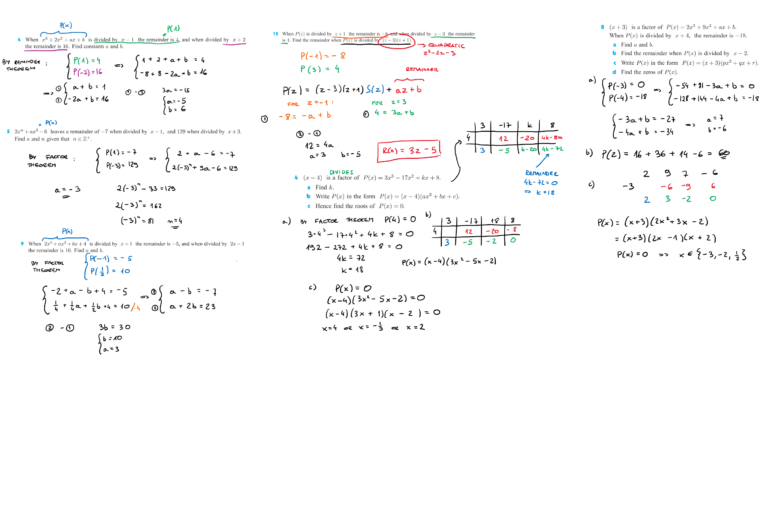 P(x)
P(1)
4 When x³ + 2x² + ax + b is divided by x − 1 the remainder is 4, and when divided by x + 2
the remainder is 16. Find constants a and b.
BY REMAINDER THEOREM :
P(1) = 4
P(-2) = 16
=>
1 + 2 + a + b = 4
-8 + 8 - 2a + b = 16
=> ① a + b = 1
② -2a + b = 16
3a = -15
a = -5
b = 6
P(x)
5 2xⁿ + ax² − 6 leaves a remainder of −7 when divided by x − 1, and 129 when divided by x + 3.
Find a and n given that n ∈ Z⁺.
BY FACTOR THEOREM
P(1) = -7
P(-3) = 129
=>
2 + a - 6 = -7
2(-3)ⁿ + 9a - 6 = 129
a = -3
2(-3)ⁿ - 33 = 129
2(-3)ⁿ = 162
(-3)ⁿ = 81 n = 4
P(x)
9 When 2x³ + ax² + bx + 4 is divided by x + 1 the remainder is −5, and when divided by 2x − 1
the remainder is 10. Find a and b.
BY FACTOR THEOREM
P(-1) = -5
P(½) = 10
-2 + a - b + 4 = -5
¼ + ¼a + ½b + 4 = 10 /·4
=> ① a - b = -7
② a + 2b = 23
② - ① 3b = 30
b = 10
a = 3
10 When P(z) is divided by z + 1 the remainder is −8 and when divided by z − 3 the remainder
is 4. Find the remainder when P(z) is divided by (z − 3)(z + 1).
→ QUADRATIC
z² - 2z - 3
P(-1) = -8
P(3) = 4
REMAINDER
P(z) = (z-3)(z+1) S(z) + az + b
FOR z = -1 :
① -8 = -a + b
FOR z = 3
② 4 = 3a + b
② - ①
12 = 4a
a = 3 b = -5
R(z) = 3z - 5
3 -17 k 8
4 12 -20 4k-80
3 -5 k-20 4k-72
REMAINDER
4k - 72 = 0
=> k = 18
DIVIDES
6 (x − 4) is a factor of P(x) = 3x³ − 17x² + kx + 8.
a Find k.
b Write P(x) in the form P(x) = (x − 4)(ax² + bx + c).
c Hence find the roots of P(x) = 0.
a) BY FACTOR THEOREM P(4) = 0
3·4³ - 17·4² + 4k + 8 = 0
192 - 272 + 4k + 8 = 0
4k = 72
k = 18
b)
3 -17 18 8
4 12 -20 -8
3 -5 -2 0
P(x) = (x-4)(3x² - 5x - 2)
c) P(x) = 0
(x-4)(3x² - 5x - 2) = 0
(x-4)(3x + 1)(x - 2) = 0
x = 4 or x = -⅓ or x = 2
8 (x + 3) is a factor of P(x) = 2x³ + 9x² + ax + b.
When P(x) is divided by x + 4, the remainder is −18.
a Find a and b.
b Find the remainder when P(x) is divided by x − 2.
c Write P(x) in the form P(x) = (x + 3)(px² + qx + r).
d Find the zeros of P(x).
a)
P(-3) = 0
P(-4) = -18
=>
-54 + 81 - 3a + b = 0
-128 + 144 - 4a + b = -18
-3a + b = -27
-4a + b = -34
=> a = 7
b = -6
b) P(2) = 16 + 36 + 14 - 6 = 60
c)
2 9 7 -6
-3 -6 -9 6
2 3 -2 0
P(x) = (x+3)(2x² + 3x - 2)
= (x+3)(2x - 1)(x + 2)
P(x) = 0 => x ∈ {-3, -2, ½}